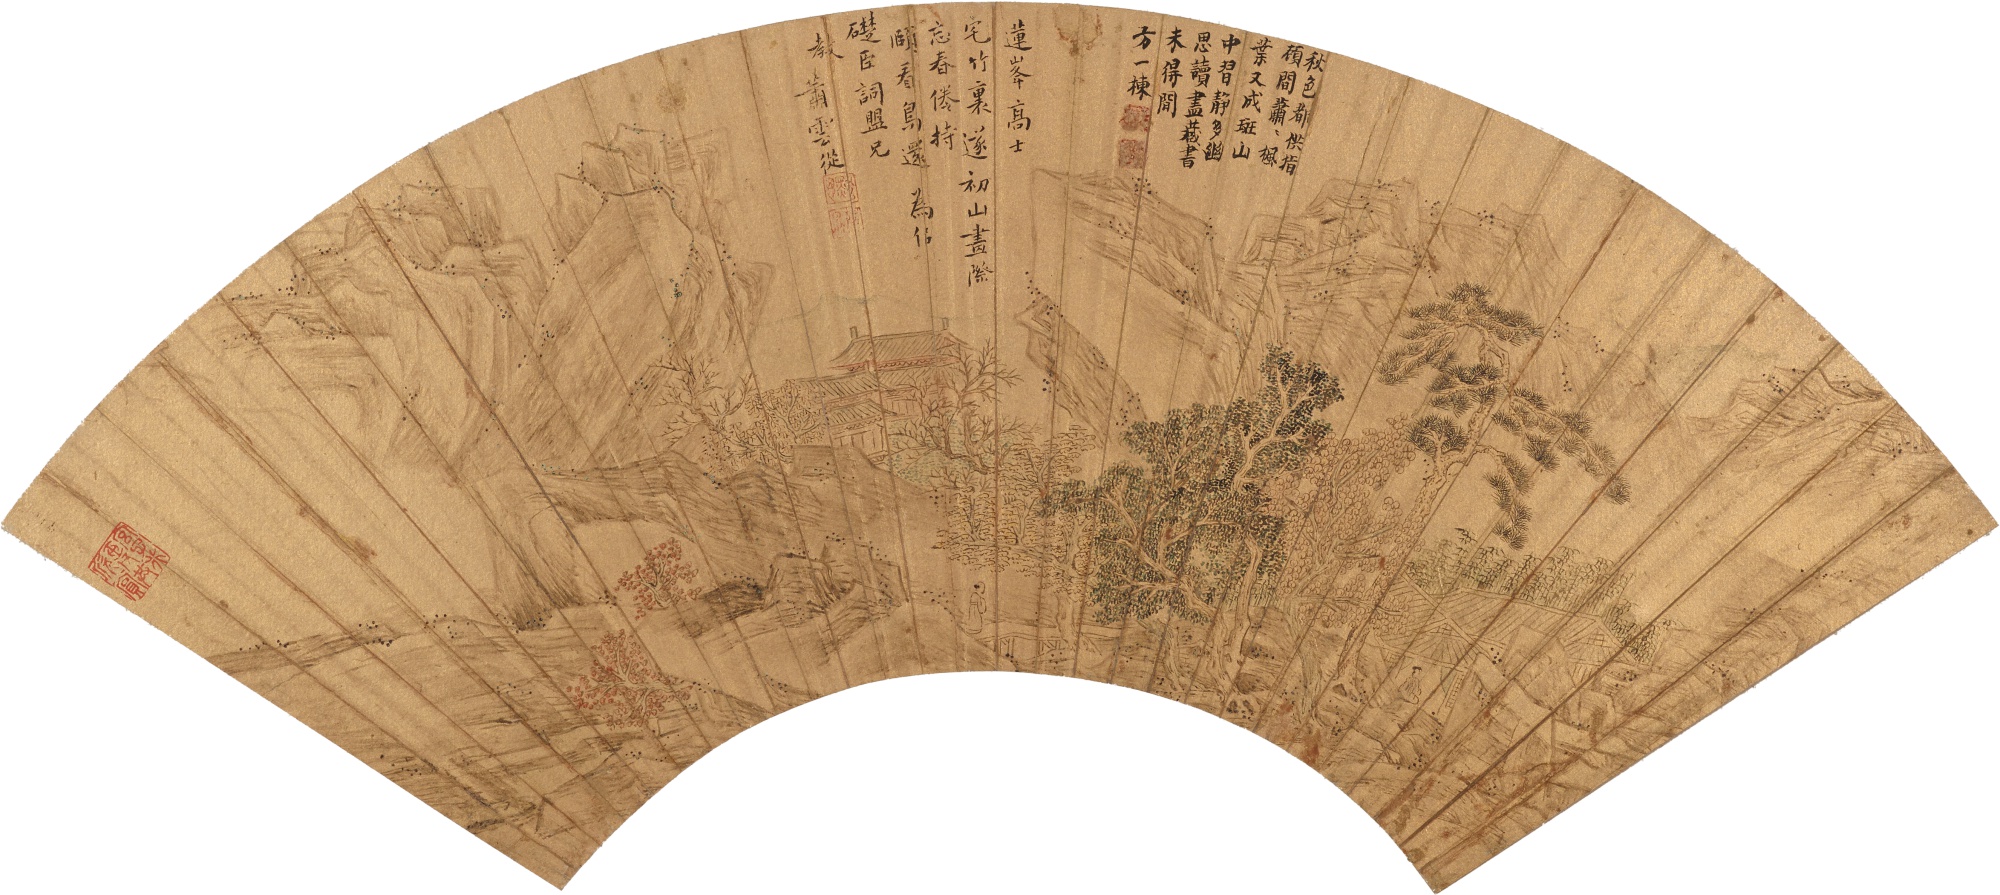 秋色都供指
顧間蕭〻楓
葉又成斑山
中習靜多幽
思讀盡藏書
未得閒
方一棟
蓮峯高士
宅竹裏遂初山畫際
忘春倦持
頤看鳥還 為佀
礎臣詞盟兄
教 蕭雲從